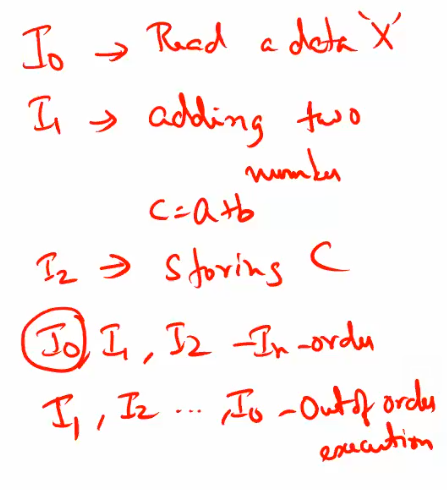 I0 → Read a data 'X'
I1 → adding two
number
c=a+b
I2 → Storing C
I0, I1, I2 -In-order
I1, I2 ..., I0 - Out of order
execution